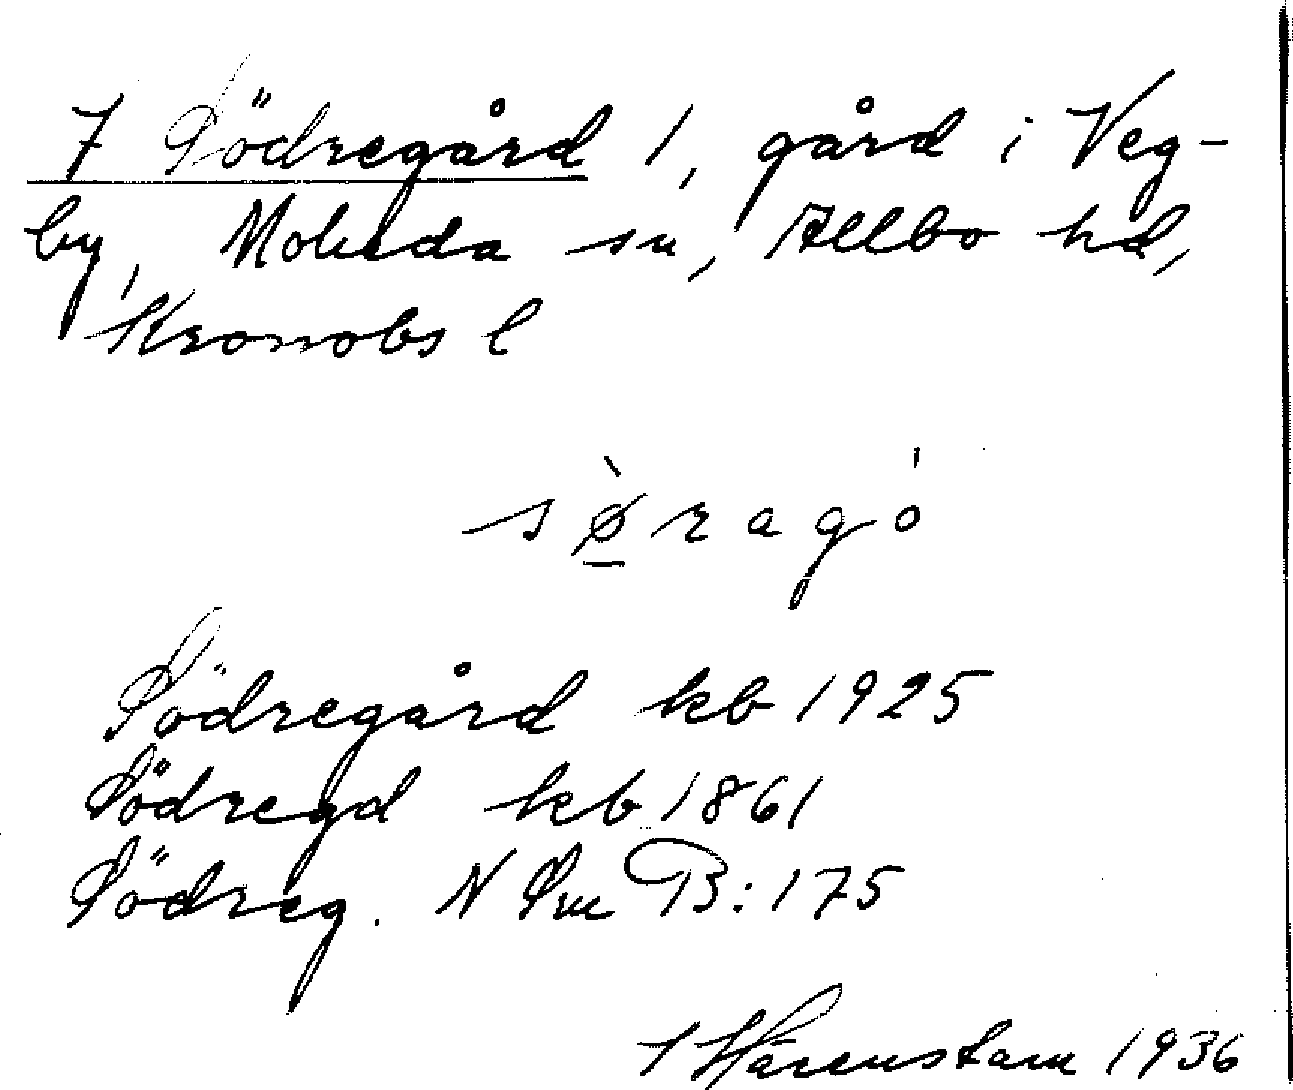 7 Södregård 1, gård i Veg-
by, Moheda sn, Allbo hd,
Kronobs l
sø̱̀ragó
Södregård kb 1925
Södregd kb 1861
Södreg. N Sm B:175
Hårenstam 1936